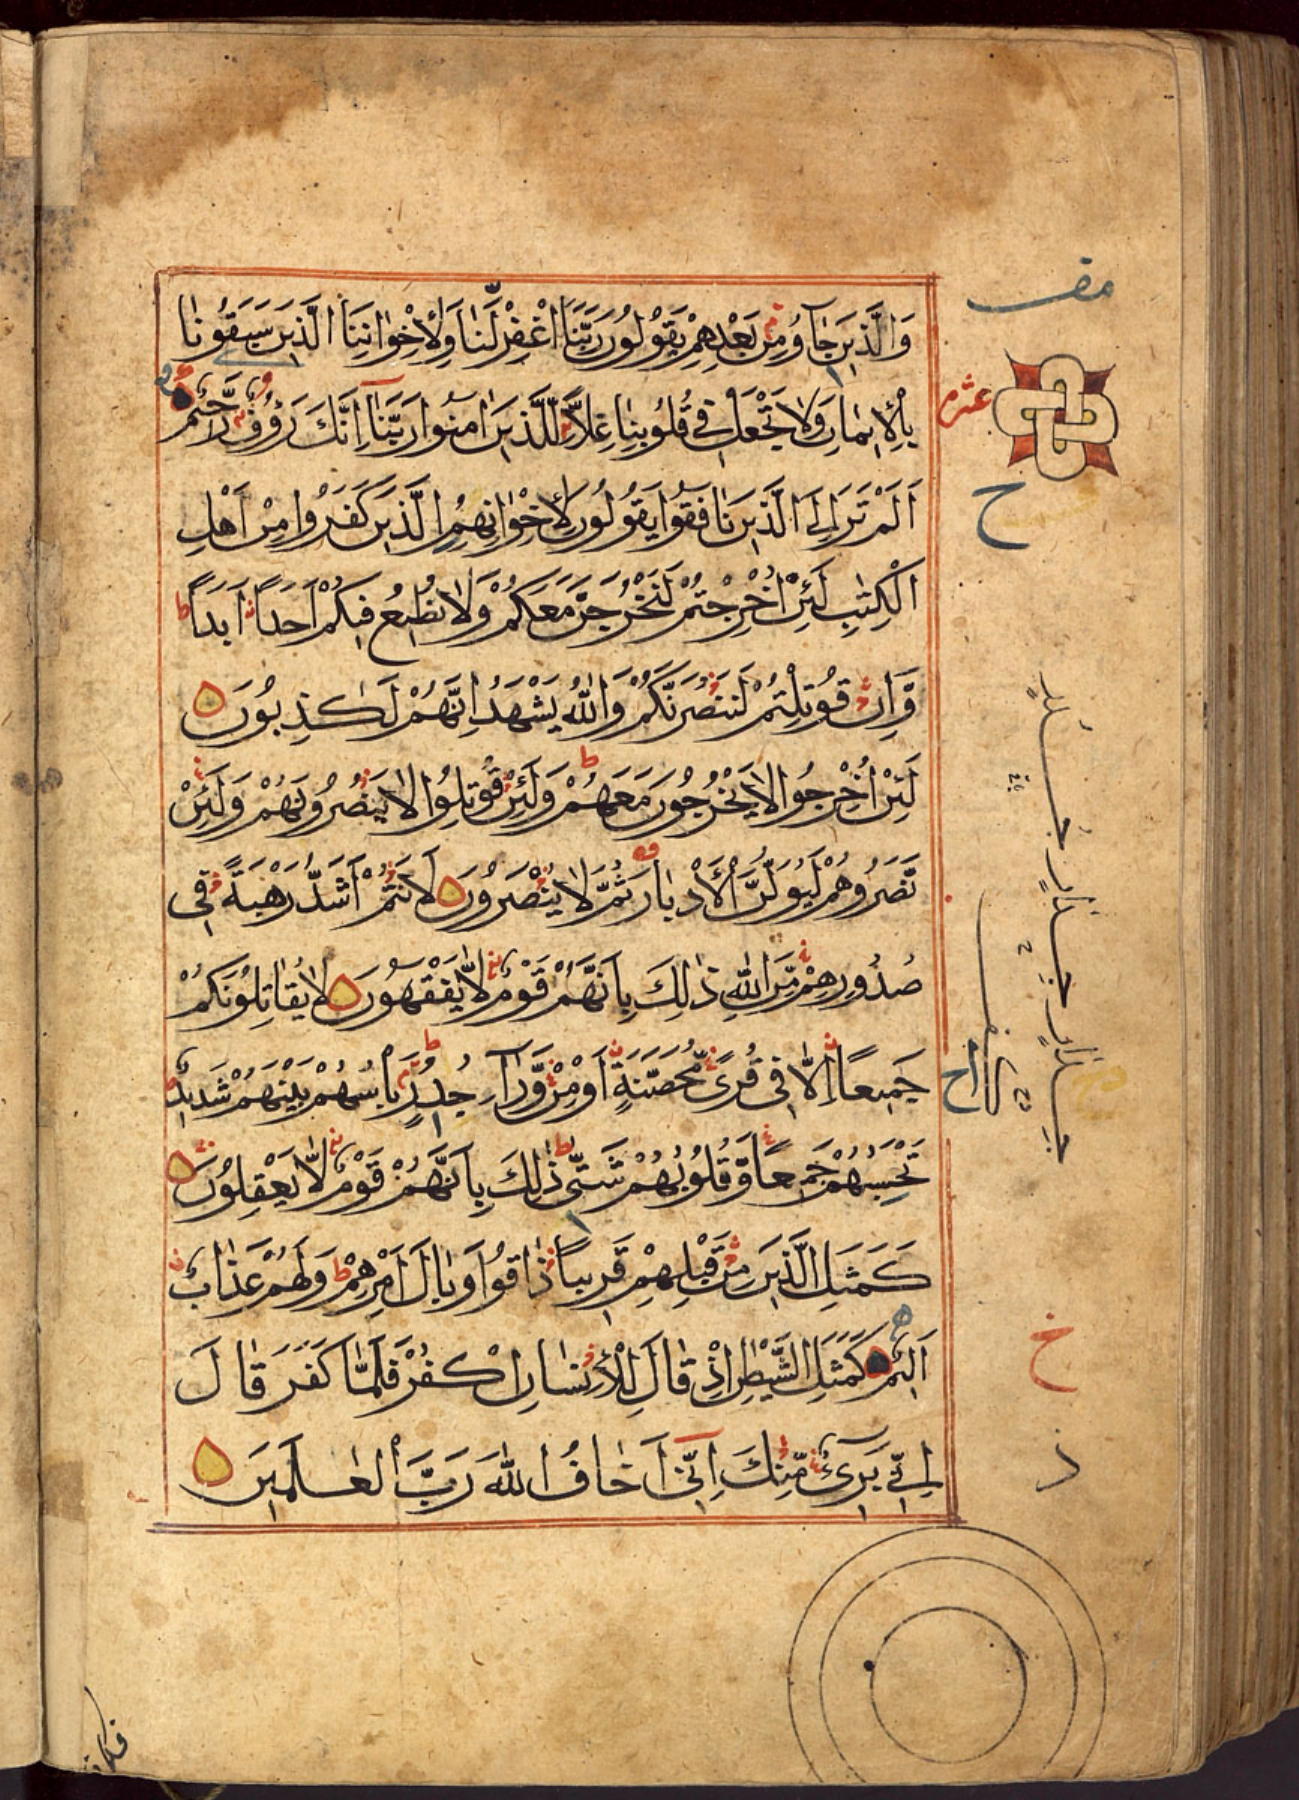 وَالَّذِينَ جَآؤُ مِنْ بَعْدِهِمْ يَقُولُونَ رَبَّنَا اغْفِرْ لَنَا وَلِاِخْوَانِنَا الَّذِينَ سَبَقُونَا
بِالْاِيمَانِ وَلَا تَجْعَلْ فِى قُلُوبِنَا غِلًّا لِلَّذِينَ اٰمَنُوا رَبَّنَآ اِنَّكَ رَؤُفٌ رَّحِيمٌ
عشر
ح
اَلَمْ تَرَ اِلَى الَّذِينَ نَافَقُوا يَقُولُونَ لِاِخْوَانِهِمُ الَّذِينَ كَفَرُوا مِنْ اَهْلِ
الْكِتٰبِ لَئِنْ اُخْرِجْتُمْ لَنَخْرُجَنَّ مَعَكُمْ وَلَا نُطِيعُ فِيكُمْ اَحَدًا اَبَدًا
وَّاِنْ قُوتِلْتُمْ لَنَنْصُرَنَّكُمْ وَاللّٰهُ يَشْهَدُ اِنَّهُمْ لَكٰذِبُونَ
لَئِنْ اُخْرِجُوا لَا يَخْرُجُونَ مَعَهُمْ وَلَئِنْ قُوتِلُوا لَا يَنْصُرُونَهُمْ وَلَئِنْ
نَّصَرُوهُمْ لَيُوَلُّنَّ الْاَدْبَارَ ثُمَّ لَا يُنْصَرُونَ لَاَنْتُمْ اَشَدُّ رَهْبَةً فِى
صُدُورِهِمْ مِّنَ اللّٰهِ ذٰلِكَ بِاَنَّهُمْ قَوْمٌ لَّا يَفْقَهُونَ لَا يُقَاتِلُونَكُمْ
جَمِيعًا اِلَّا فِى قُرًى مُّحَصَّنَةٍ اَوْ مِنْ وَّرَآءِ جُدُرٍ بَاْسُهُمْ بَيْنَهُمْ شَدِيدٌ
تَحْسَبُهُمْ جَمِيعًا وَّقُلُوبُهُمْ شَتّٰى ذٰلِكَ بِاَنَّهُمْ قَوْمٌ لَّا يَعْقِلُونَ
كَمَثَلِ الَّذِينَ مِنْ قَبْلِهِمْ قَرِيبًا ذَاقُوا وَبَالَ اَمْرِهِمْ وَلَهُمْ عَذَابٌ
اَلِيمٌ كَمَثَلِ الشَّيْطٰنِ اِذْ قَالَ لِلْاِنْسَانِ اكْفُرْ فَلَمَّا كَفَرَ قَالَ
اِنِّى بَرِىٓءٌ مِّنْكَ اِنِّىٓ اَخَافُ اللّٰهَ رَبَّ الْعٰلَمِينَ